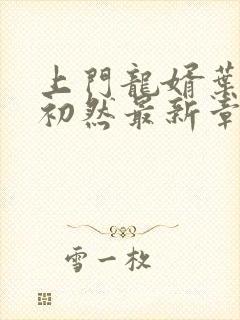 上門龍婿葉
初然最新章
雪一枚